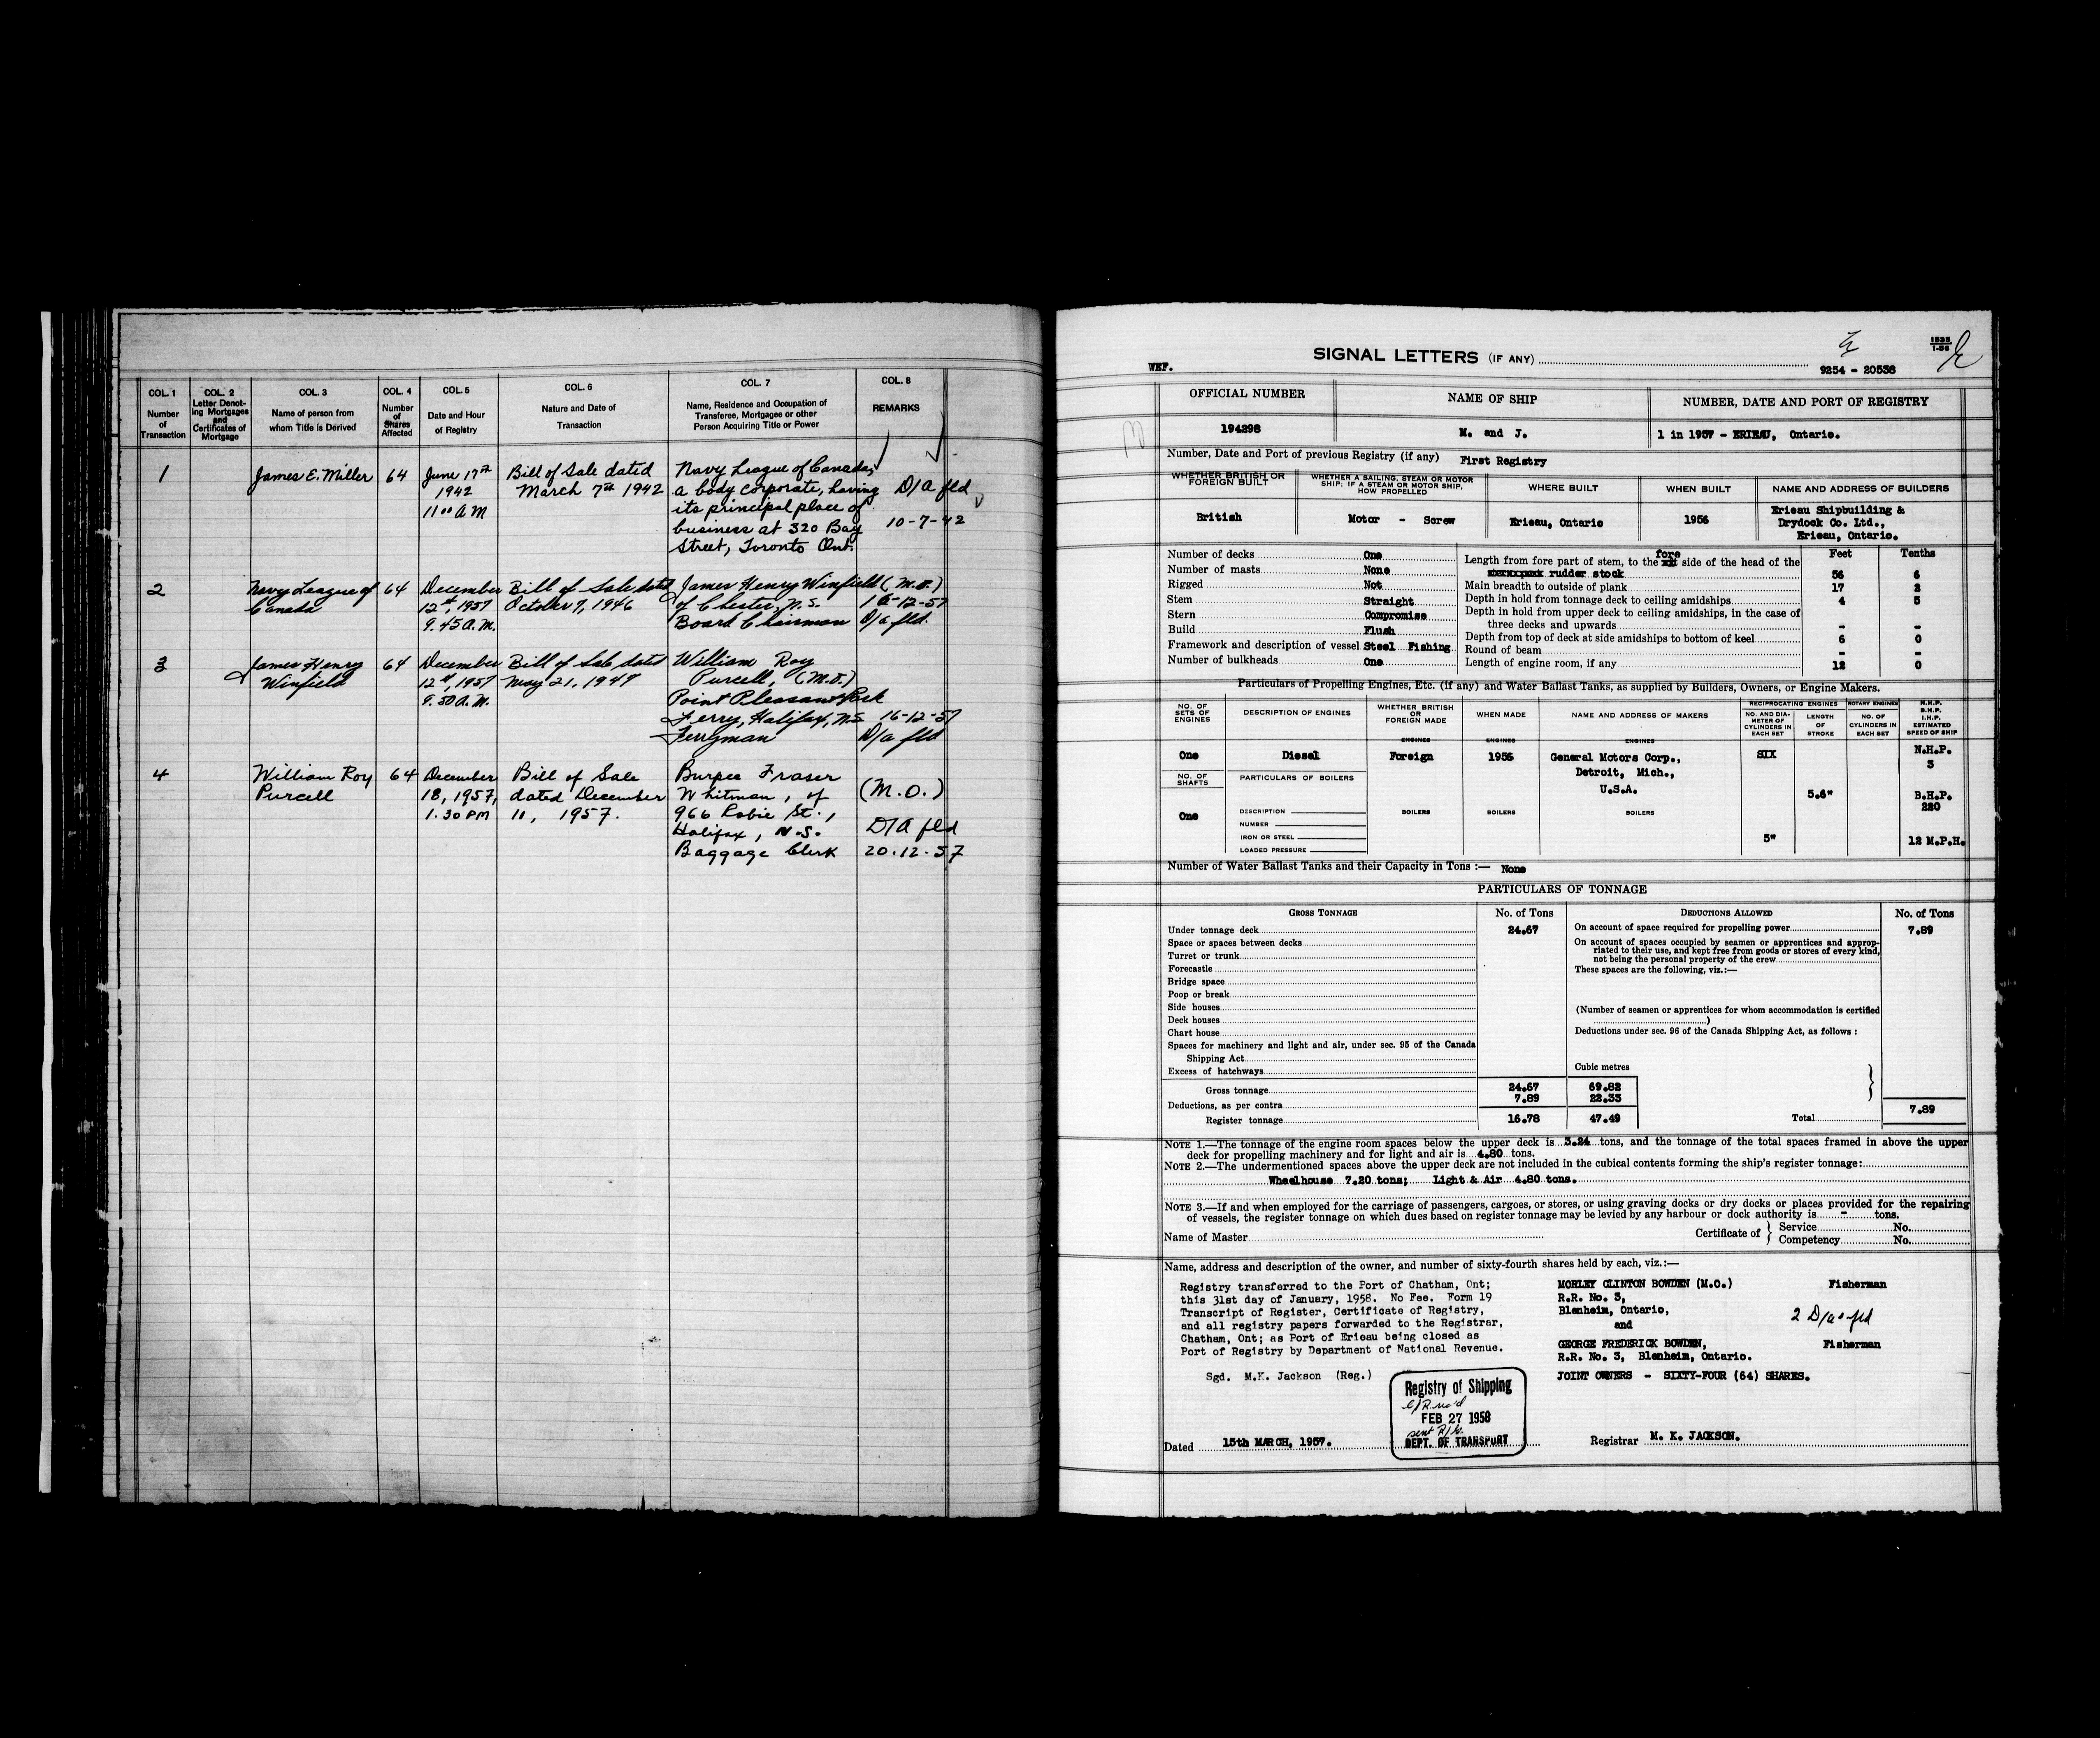 COL. 1 COL. 2 COL. 3 COL. 4 COL. 5 COL. 6 COL. 7 COL. 8
Number of Transaction
Letter Denoting Mortgages and Certificates of Mortgage
Name of person from whom Title is Derived
Number of Shares Affected
Date and Hour of Registry
Nature and Date of Transaction
Name, Residence and Occupation of Transferee, Mortgagee or other Person Acquiring Title or Power
REMARKS
1 James E. Miller 64 June 17th Bill of Sale dated Navy League of Canada,
1942 March 7th 1942 a body corporate, having D/a fld
11 00 A M its principal place of
business at 320 Bay 10-7-42
Street, Toronto Ont.
2 Navy League of 64 December Bill of Sale dated James Henry Winfield (M.O.)
Canada 12th, 1957 October 7, 1946 of Chester, N.S. 16-12-57
9.45 A.M. Board Chairman D/a fld.
3 James Henry 64 December Bill of Sale dated William Roy
Winfield 12th, 1957 May 21, 1947 Purcell, (M.O.)
9.50 A.M. Point Pleasant Park
Ferry, Halifax, N.S. 16-12-57
Ferryman D/a fld
4 William Roy 64 December Bill of Sale Burpee Fraser
Purcell 18, 1957, dated December Whitman, of (M.O.)
1.30 PM 11, 1957. 966 Robie St.,
Halifax, N.S. D/A fld
Baggage Clerk 20-12-57
SIGNAL LETTERS (IF ANY)
WEF. 9254 - 20538
1-56
OFFICIAL NUMBER NAME OF SHIP NUMBER, DATE AND PORT OF REGISTRY
194298 M. and J. 1 in 1957 - ERIEAU, Ontario.
Number, Date and Port of previous Registry (if any) First Registry
WHETHER BRITISH OR FOREIGN BUILT
WHETHER A SAILING, STEAM OR MOTOR SHIP; IF A STEAM OR MOTOR SHIP, HOW PROPELLED
WHERE BUILT WHEN BUILT NAME AND ADDRESS OF BUILDERS
British Motor - Screw Erieau, Ontario 1956 Erieau Shipbuilding &
Drydock Co. Ltd.,
Erieau, Ontario.
Number of decks One
Number of masts None
Rigged Not
Stem Straight
Stern Compromise
Build Flush
Framework and description of vessel Steel Fishing
Number of bulkheads One
Feet Tenths
fore
Length from fore part of stem, to the side of the head of the
rudder stock 56 6
Main breadth to outside of plank 17 2
Depth in hold from tonnage deck to ceiling amidships 4 5
Depth in hold from upper deck to ceiling amidships, in the case of
three decks and upwards - -
Depth from top of deck at side amidships to bottom of keel 6 0
Round of beam - -
Length of engine room, if any 12 0
Particulars of Propelling Engines, Etc. (if any) and Water Ballast Tanks, as supplied by Builders, Owners, or Engine Makers.
NO. OF SETS OF ENGINES
DESCRIPTION OF ENGINES
WHETHER BRITISH OR FOREIGN MADE
WHEN MADE
NAME AND ADDRESS OF MAKERS
RECIPROCATING ENGINES ROTARY ENGINES
NO. AND DIAMETER OF CYLINDERS IN EACH SET
LENGTH OF STROKE
NO. OF CYLINDERS IN EACH SET
N.H.P.
B.H.P.
I.H.P.
ESTIMATED SPEED OF SHIP
ENGINES ENGINES ENGINES
One Diesel Foreign 1956 General Motors Corp., SIX N.H.P.
Detroit, Mich., 3
U.S.A. 5.6" B.H.P.
220
NO. OF SHAFTS PARTICULARS OF BOILERS
One DESCRIPTION BOILERS BOILERS BOILERS
NUMBER
IRON OR STEEL 5" 12 M.P.H.
LOADED PRESSURE
Number of Water Ballast Tanks and their Capacity in Tons :— None
PARTICULARS OF TONNAGE
GROSS TONNAGE No. of Tons DEDUCTIONS ALLOWED No. of Tons
Under tonnage deck 24.67
Space or spaces between decks
Turret or trunk
Forecastle
Bridge space
Poop or break
Side houses
Deck houses
Chart house
Spaces for machinery and light and air, under sec. 95 of the Canada
Shipping Act
Excess of hatchways
On account of space required for propelling power 7.89
On account of spaces occupied by seamen or apprentices and appropriated to their use, and kept free from goods or stores of every kind, not being the personal property of the crew
These spaces are the following, viz.:—
(Number of seamen or apprentices for whom accommodation is certified
)
Deductions under sec. 96 of the Canada Shipping Act, as follows :
Cubic metres
Gross tonnage 24.67 69.82
Deductions, as per contra 7.89 22.33
Register tonnage 16.78 47.49 Total 7.89
NOTE 1.—The tonnage of the engine room spaces below the upper deck is 3.24 tons, and the tonnage of the total spaces framed in above the upper
deck for propelling machinery and for light and air is 4.80 tons.
NOTE 2.—The undermentioned spaces above the upper deck are not included in the cubical contents forming the ship's register tonnage:
Wheelhouse 7.20 tons; Light & Air 4.80 tons.
NOTE 3.—If and when employed for the carriage of passengers, cargoes, or stores, or using graving docks or dry docks or places provided for the repairing
of vessels, the register tonnage on which dues based on register tonnage may be levied by any harbour or dock authority is - tons.
Name of Master Certificate of Service No.
Competency No.
Name, address and description of the owner, and number of sixty-fourth shares held by each, viz.:—
Registry transferred to the Port of Chatham, Ont;
this 31st day of January, 1958. No Fee. Form 19
Transcript of Register, Certificate of Registry,
and all registry papers forwarded to the Registrar,
Chatham, Ont; as Port of Erieau being closed as
Port of Registry by Department of National Revenue.
Sgd. M.K. Jackson (Reg.)
MORLEY CLINTON BOWDEN (M.O.) Fisherman
R.R. No. 3,
Blenheim, Ontario,
and 2 D/as fld
GEORGE FREDERICK BOWDEN, Fisherman
R.R. No. 3, Blenheim, Ontario.
JOINT OWNERS - SIXTY-FOUR (64) SHARES.
Registry of Shipping
FEB 27 1958
DEPT. OF TRANSPORT
Dated 15th MARCH, 1957. Registrar M. K. JACKSON.